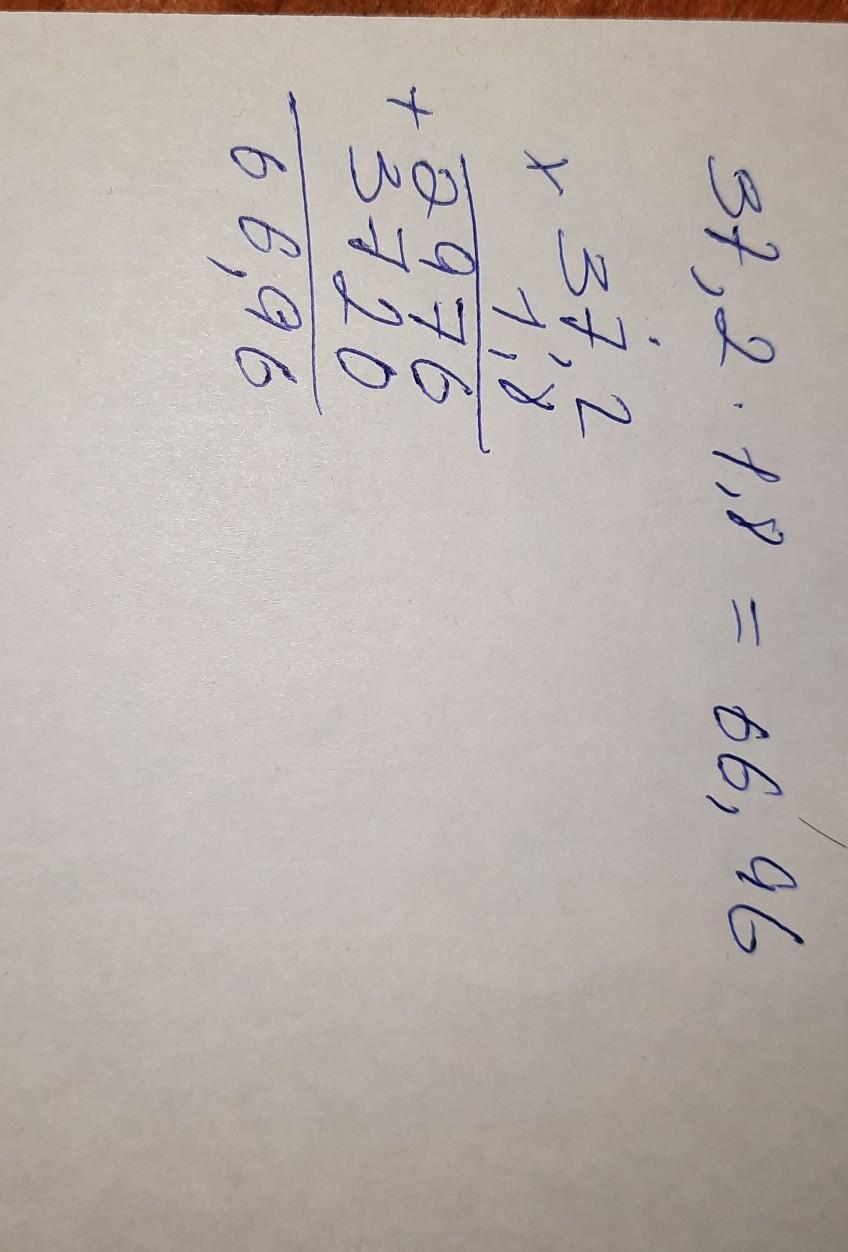 37,2 · 1,8 = 66,96
× 37,2
1,8
+ 2976
3720
66,96